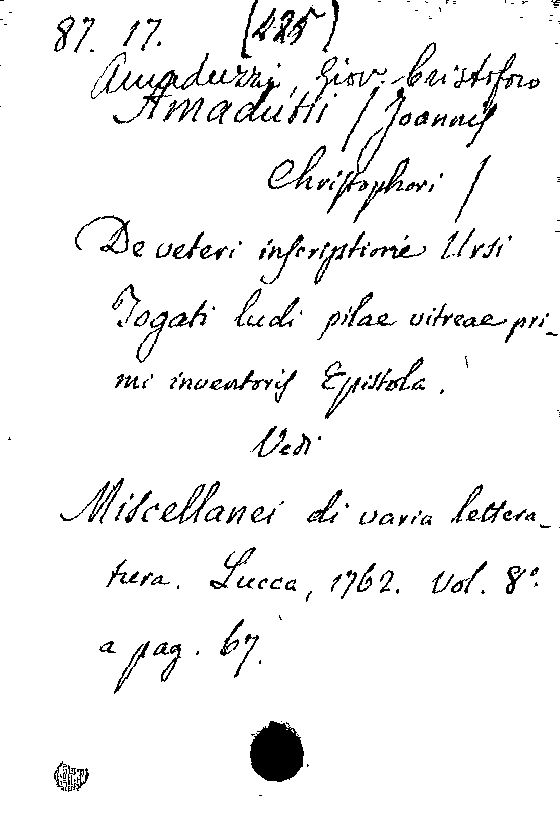 87. 17. (225)
Amaduzzi, Giov. Cristoforo
Amadutii / Joannis
Christophori /
De veteri inscriptione Ursi
Togati ludi pilae vitreae pri-
mi inventoris Epistola.
Vedi
Miscellanei di varia lettera-
tura. Lucca, 1762. Vol. 8º.
a pag. 67.